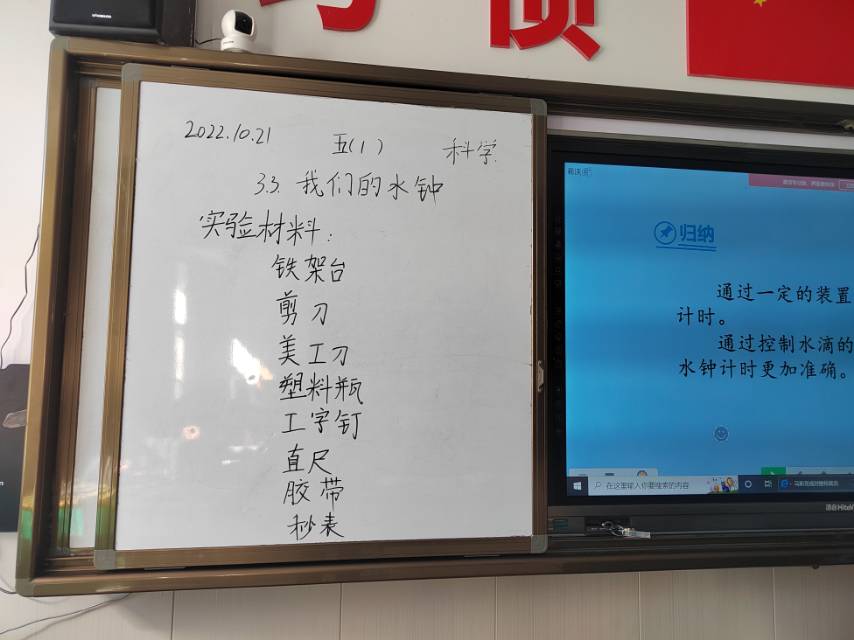 2022.10.21 五(1) 科学
3.3 我们的水钟
实验材料:
铁架台
剪刀
美工刀
塑料瓶
工字钉
直尺
胶带
秒表
归纳
通过一定的装置
计时。
通过控制水滴的
水钟计时更加准确。
在这里输入你要搜索的内容